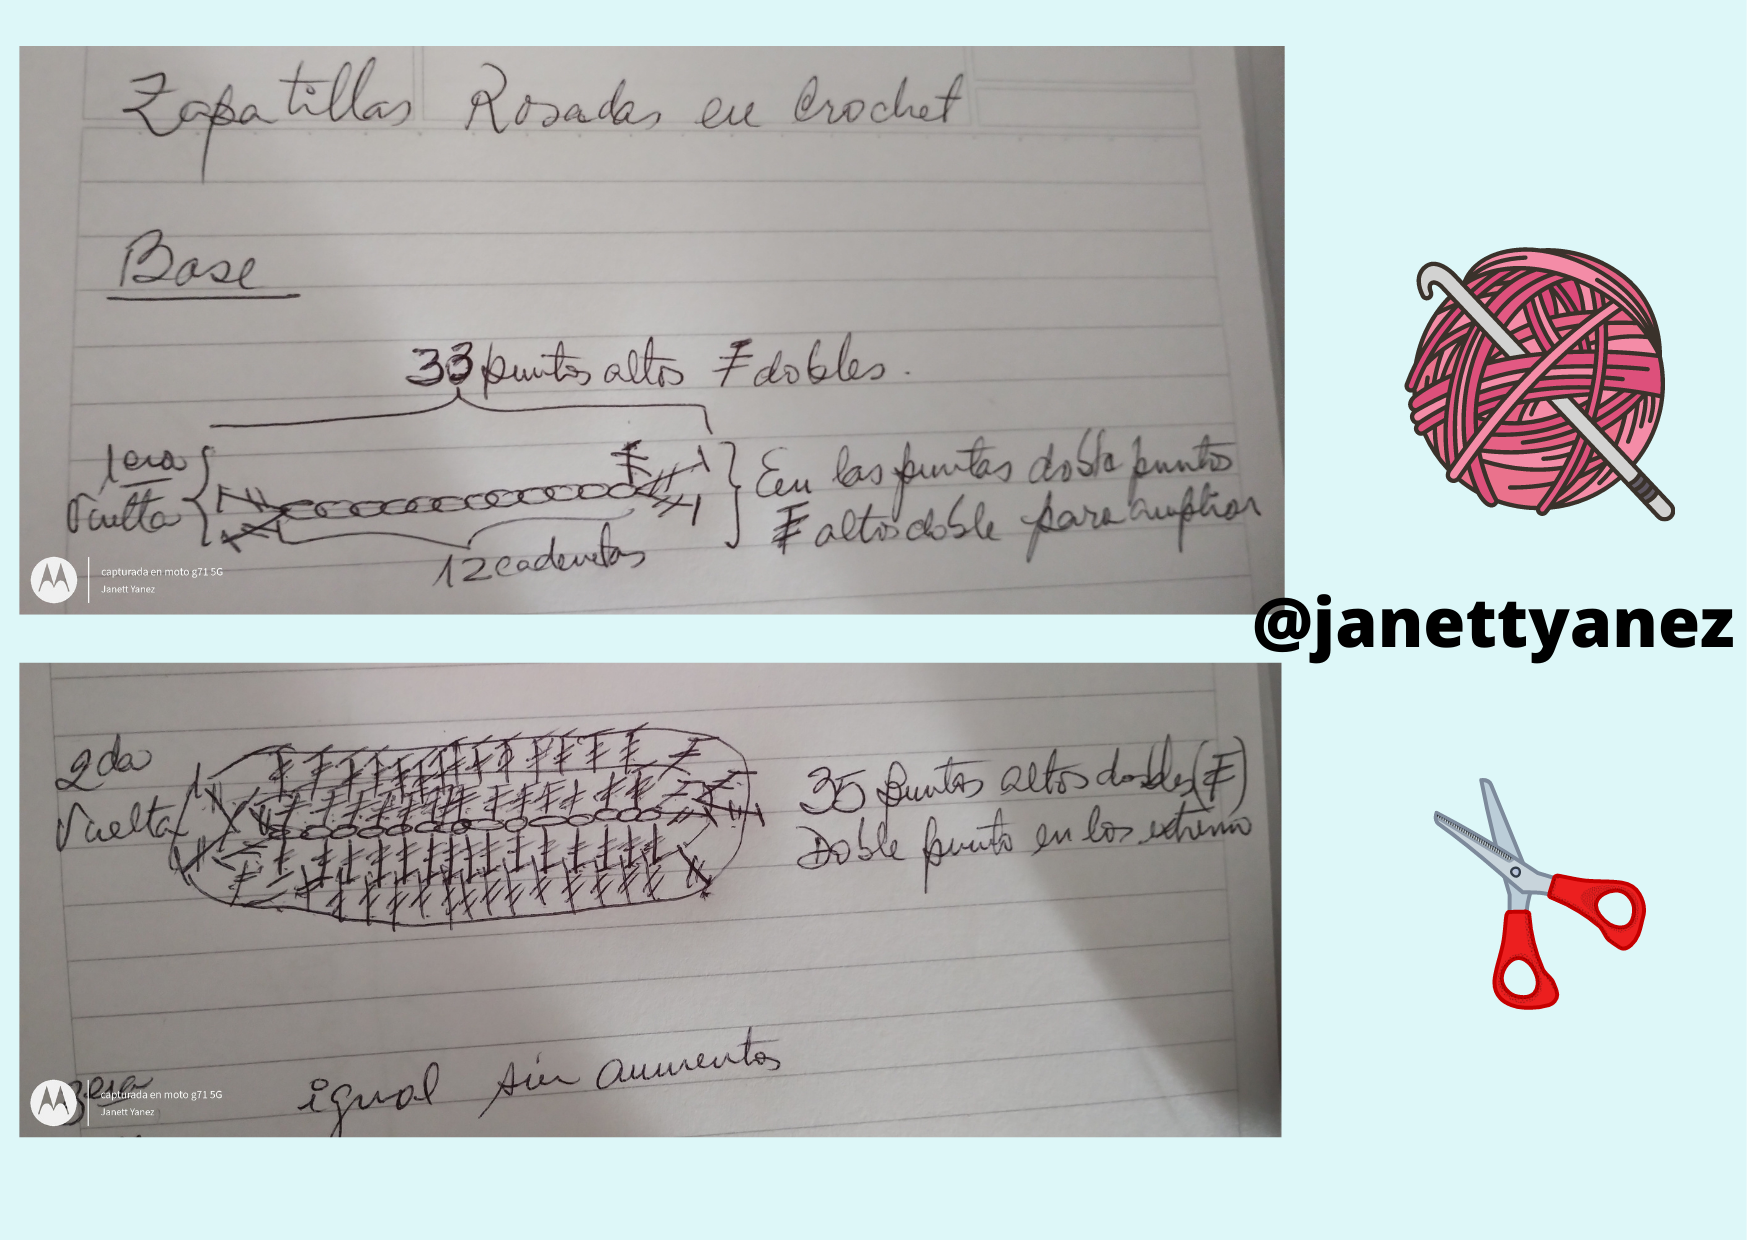 Zapatillas Rosadas en Crochet
Base
33 puntos altos dobles.
1era
Vuelta
En las puntas doble punto
altos doble para ampliar
12 cadenetas
capturada en moto g71 5G
Janett Yanez
@janettyanez
2da
Vuelta
35 puntos altos dobles
Doble punto en los extremo
3era
igual sin aumentos
capturada en moto g71 5G
Janett Yanez